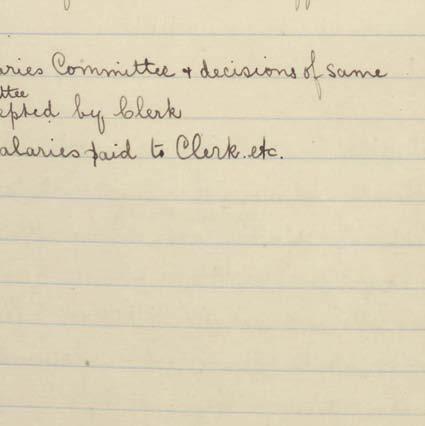 aries Committee & decisions of same
ttee
epted by Clerk
alaries paid to Clerk. etc.